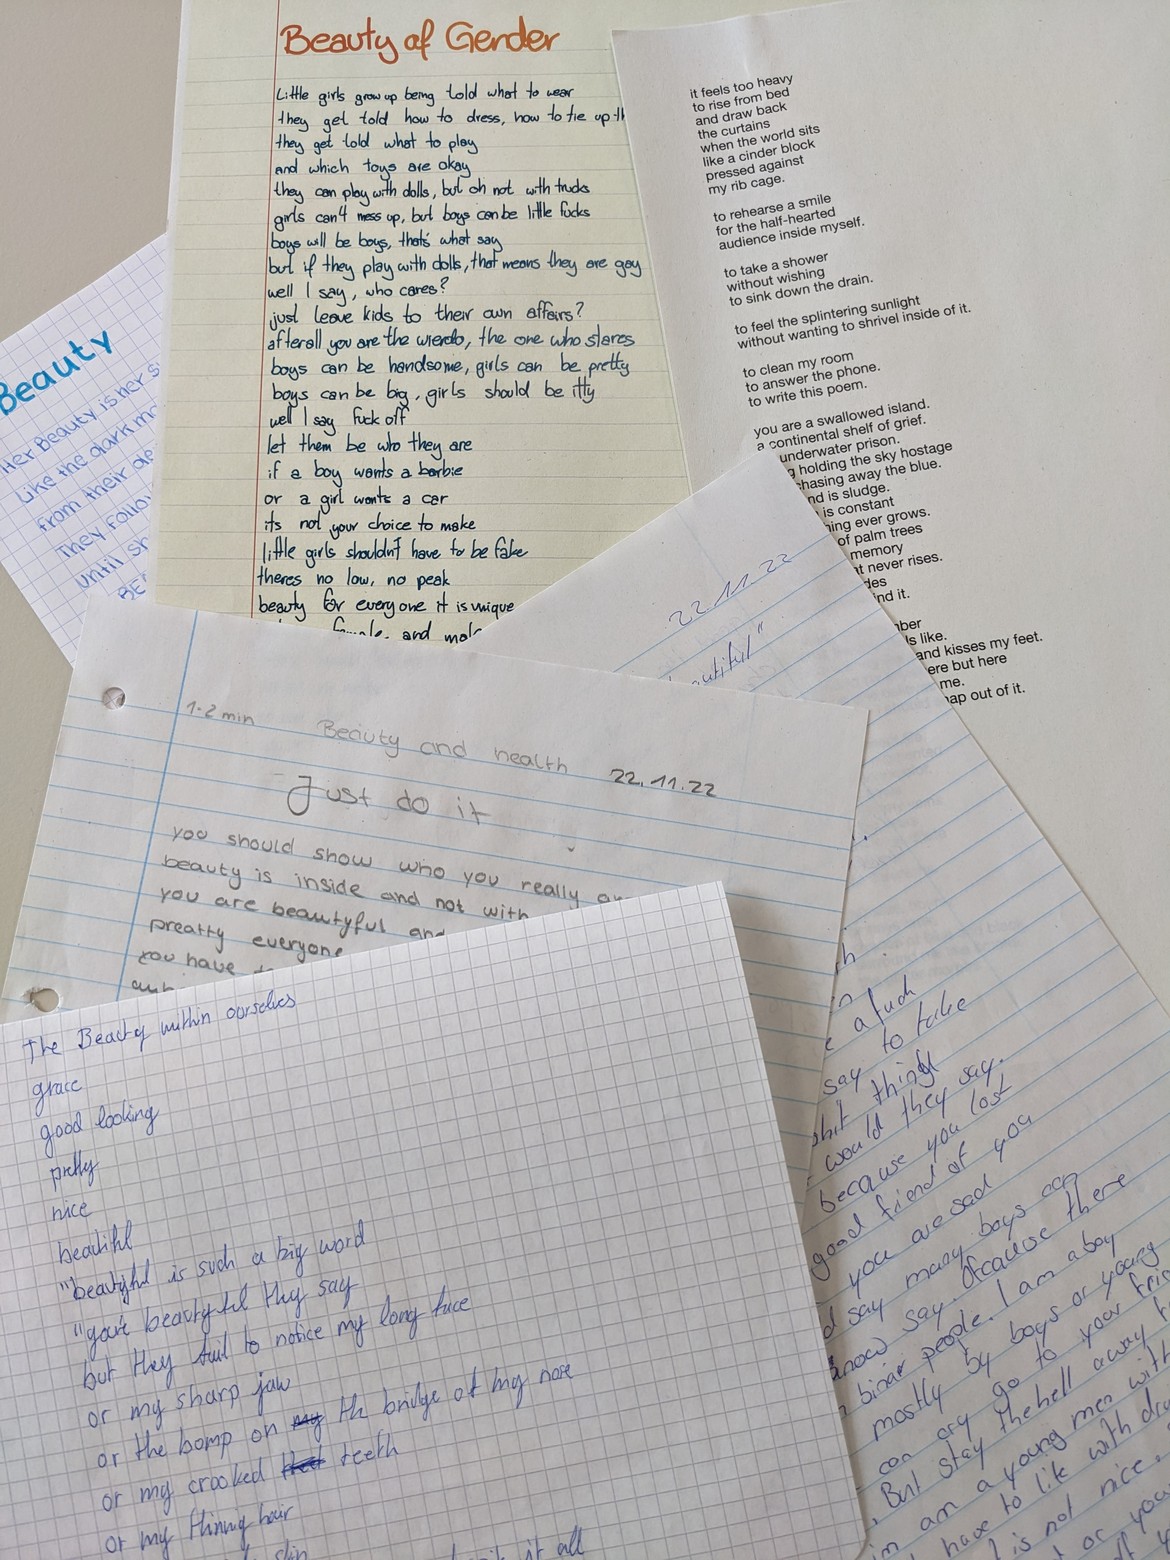 Beauty of Gender
Little girls grow up being told what to wear
they get told how to dress, how to tie up th
they get told what to play
and which toys are okay
they can play with dolls, but oh not with trucks
girls can't mess up, but boys can be little fucks
boys will be boys, that's what say
but if they play with dolls, that means they are gay
well I say, who cares?
just leave kids to their own affairs?
afterall you are the wierdo, the one who stares
boys can be handsome, girls can be pretty
boys can be big, girls should be itty
well I say fuck off
let them be who they are
if a boy wants a barbie
or a girl wants a car
its not your choice to make
little girls shouldn't have to be fake
theres no low, no peak
beauty for everyone it is unique
female, and male
it feels too heavy
to rise from bed
and draw back
the curtains
when the world sits
like a cinder block
pressed against
my rib cage.
to rehearse a smile
for the half-hearted
audience inside myself.
to take a shower
without wishing
to sink down the drain.
to feel the splintering sunlight
without wanting to shrivel inside of it.
to clean my room
to answer the phone.
to write this poem.
you are a swallowed island.
a continental shelf of grief.
underwater prison.
g holding the sky hostage
chasing away the blue.
nd is sludge.
is constant
ning ever grows.
of palm trees
memory
t never rises.
des
ind it.
nber
ls like.
and kisses my feet.
ere but here
me.
nap out of it.
Beauty
Her Beauty is her s
Like the dark mo
from their de
They follo
until sh
BE
22.11.22
autiful"
1-2 min
Beauty and health
22.11.22
Just do it
you should show who you really ar
beauty is inside and not with
you are beautyful and
preatty everyone
you have
The Beauty within ourselves
grace
good looking
pretty
nice
beautiful
"beautiful is such a big word
"you're beautyful they say
but they fail to notice my long face
or my sharp jaw
or the bomp on my th bridge of my nose
or my crooked teeth
or my thinnig hair
skin
it all
a fuck
say to take
shit things
would they say.
because you lost
good friend of you
you are sad
d say many boys can
know say. Because there
binar people. I am a boy
mostly by boys or young
can cry go to your frie
But stay the hell away f
am a young men with
have to life with dr
is not nice.
or you